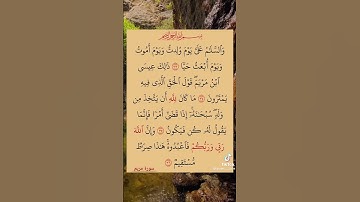 بسم الله الرحمن الرحيم
وَٱلسَّلَٰمُ عَلَىَّ يَوْمَ وُلِدتُّ وَيَوْمَ أَمُوتُ
وَيَوْمَ أُبْعَثُ حَيًّا ۝ ذَٰلِكَ عِيسَى
ٱبْنُ مَرْيَمَ ۚ قَوْلَ ٱلْحَقِّ ٱلَّذِى فِيهِ
يَمْتَرُونَ ۝ مَا كَانَ لِلَّهِ أَن يَتَّخِذَ مِن
وَلَدٍ ۖ سُبْحَٰنَهُۥٓ ۚ إِذَا قَضَىٰٓ أَمْرًا فَإِنَّمَا
يَقُولُ لَهُۥ كُن فَيَكُونُ ۝ وَإِنَّ ٱللَّهَ
رَبِّى وَرَبُّكُمْ فَٱعْبُدُوهُ ۚ هَٰذَا صِرَٰطٌ
مُّسْتَقِيمٌ ۝
سورة مريم